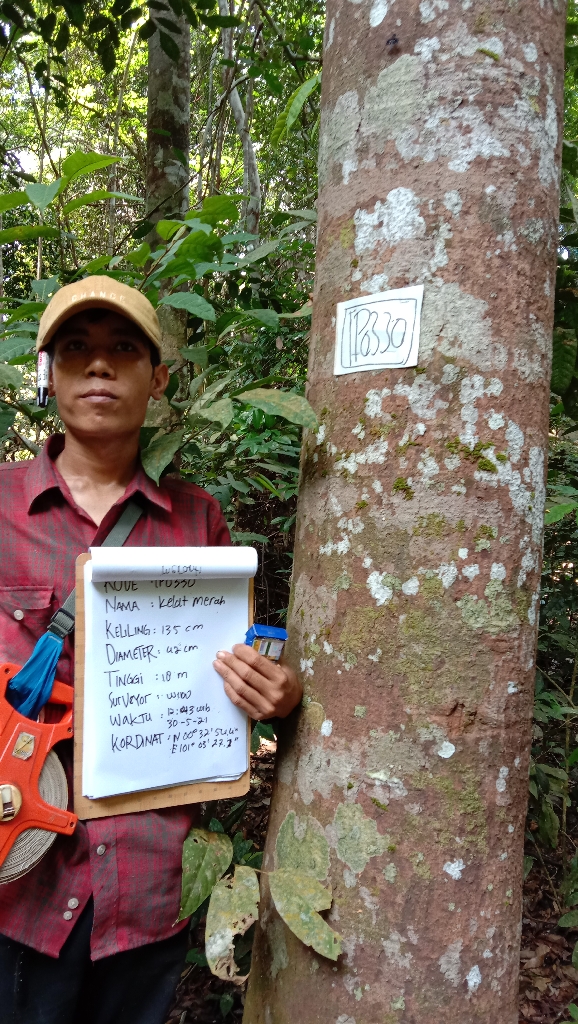 CHANDY
TP0330
KODE : TP0330
NAMA : Kelat merah
KELILING : 135 cm
DIAMETER : 42 cm
TINGGI : 18 m
SURVEYOR : WIDO
WAKTU : 12:043 wib
30-5-21
KORDINAT : N 00° 32'
E 101° 03' 22.2"